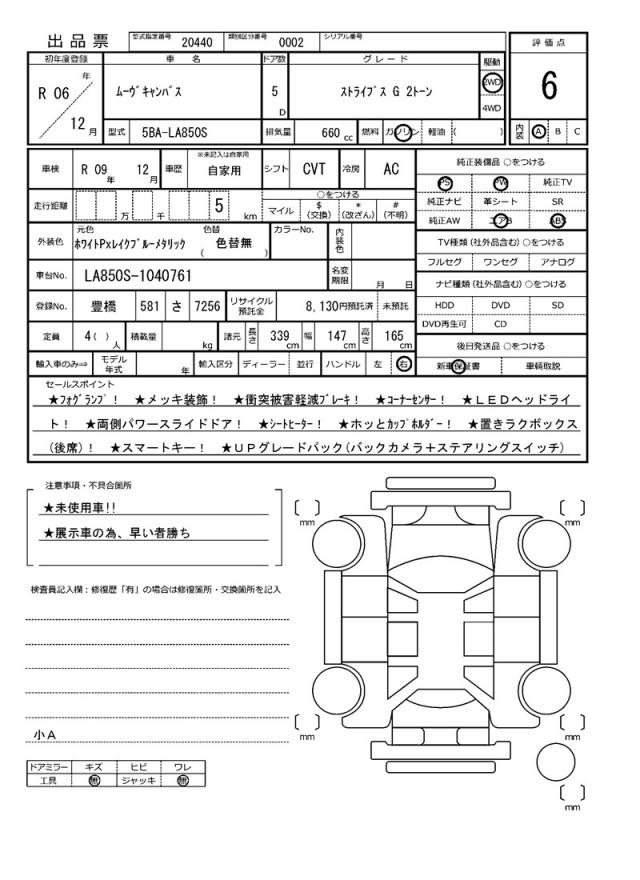 出品票 型式指定番号 20440 類別区分番号 0002 シリアル番号
評価点
6
内装 A B C
初年度登録 車名 ドア数 グレード 駆動
R 06 年 12 月
ﾑｰｳﾞｷｬﾝﾊﾞｽ
5 D
ｽﾄﾗｲﾌﾟｽ G 2トーン
2WD
4WD
型式 5BA-LA850S 排気量 660 cc 燃料 ガソリン 軽油 ( )
車検 R 09 年 12 月 車歴 ※未記入は自家用 自家用 シフト CVT 冷房 AC
走行距離 万 千 5 km
○をつける
マイル $ (交換) * (改ざん) # (不明)
外装色 元色 ﾎﾜｲﾄPxﾚｲｸﾌﾞﾙｰﾒﾀﾘｯｸ 色替 ( 色替無 ) カラーNo. 内装色
車台No. LA850S-1040761 名変期限 月 日
登録No. 豊橋 581 さ 7256 リサイクル預託金 8,130円預託済 未預託
定員 4( ) 人 積載量 kg 諸元 長さ 339 cm 幅 147 cm 高さ 165 cm
輸入車のみ⇒ モデル年式 年 輸入区分 ディーラー 並行 ハンドル 左 右
純正装備品 ○をつける
PS PW 純正TV
純正ナビ 革シート SR
純正AW エアB ABS
TV種類 (社外品含む) ○をつける
フルセグ ワンセグ アナログ
ナビ種類 (社外品含む) ○をつける
HDD DVD SD
DVD再生可 CD
後日発送品 ○をつける
新車保証書 車輌取説
セールスポイント
★ﾌｫｸﾞﾗﾝﾌﾟ! ★メッキ装飾! ★衝突被害軽減ﾌﾞﾚｰｷ! ★ｺｰﾅｰｾﾝｻｰ! ★ＬＥＤヘッドライ
ト! ★両側パワースライドドア! ★ｼｰﾄﾋｰﾀｰ! ★ホッとｶｯﾌﾟﾎﾙﾀﾞｰ! ★置きラクボックス
(後席)! ★スマートキー! ★ＵＰグレードパック(バックカメラ+ステアリングスイッチ)
注意事項・不具合箇所
★未使用車!!
★展示車の為、早い者勝ち
検査員記入欄：修復歴「有」の場合は修復箇所・交換箇所を記入
小Ａ
ドアミラー キズ ヒビ ワレ
工具 無 ジャッキ 無
[ ] mm
[ ] mm
[ ] mm
[ ] mm
[ ] mm